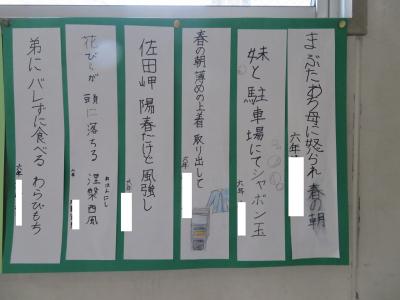 まぶたおもう母に怒られ 春の朝
六年
妹と 駐車場にて シャボン玉
六年
春の朝 薄めの上着 取り出して
六年
佐田岬 陽春だけど 風強し
六年
花びらが 頭に落ちる 涅槃西風
ねはんにし
六年
弟に バレずに食べる わらびもち
六年